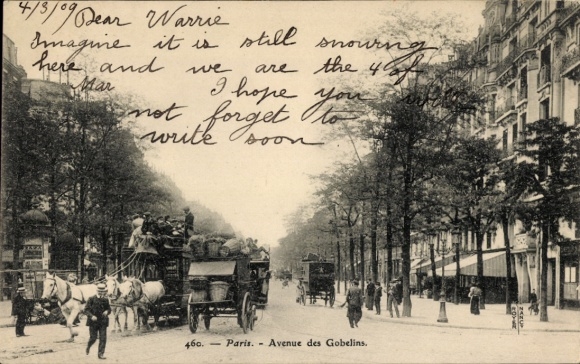 4/3/09
Dear Warrie
Imagine it is still snowing
here and we are the 4 of
Mar I hope you will
not forget to
write soon
460. - Paris. - Avenue des Gobelins.